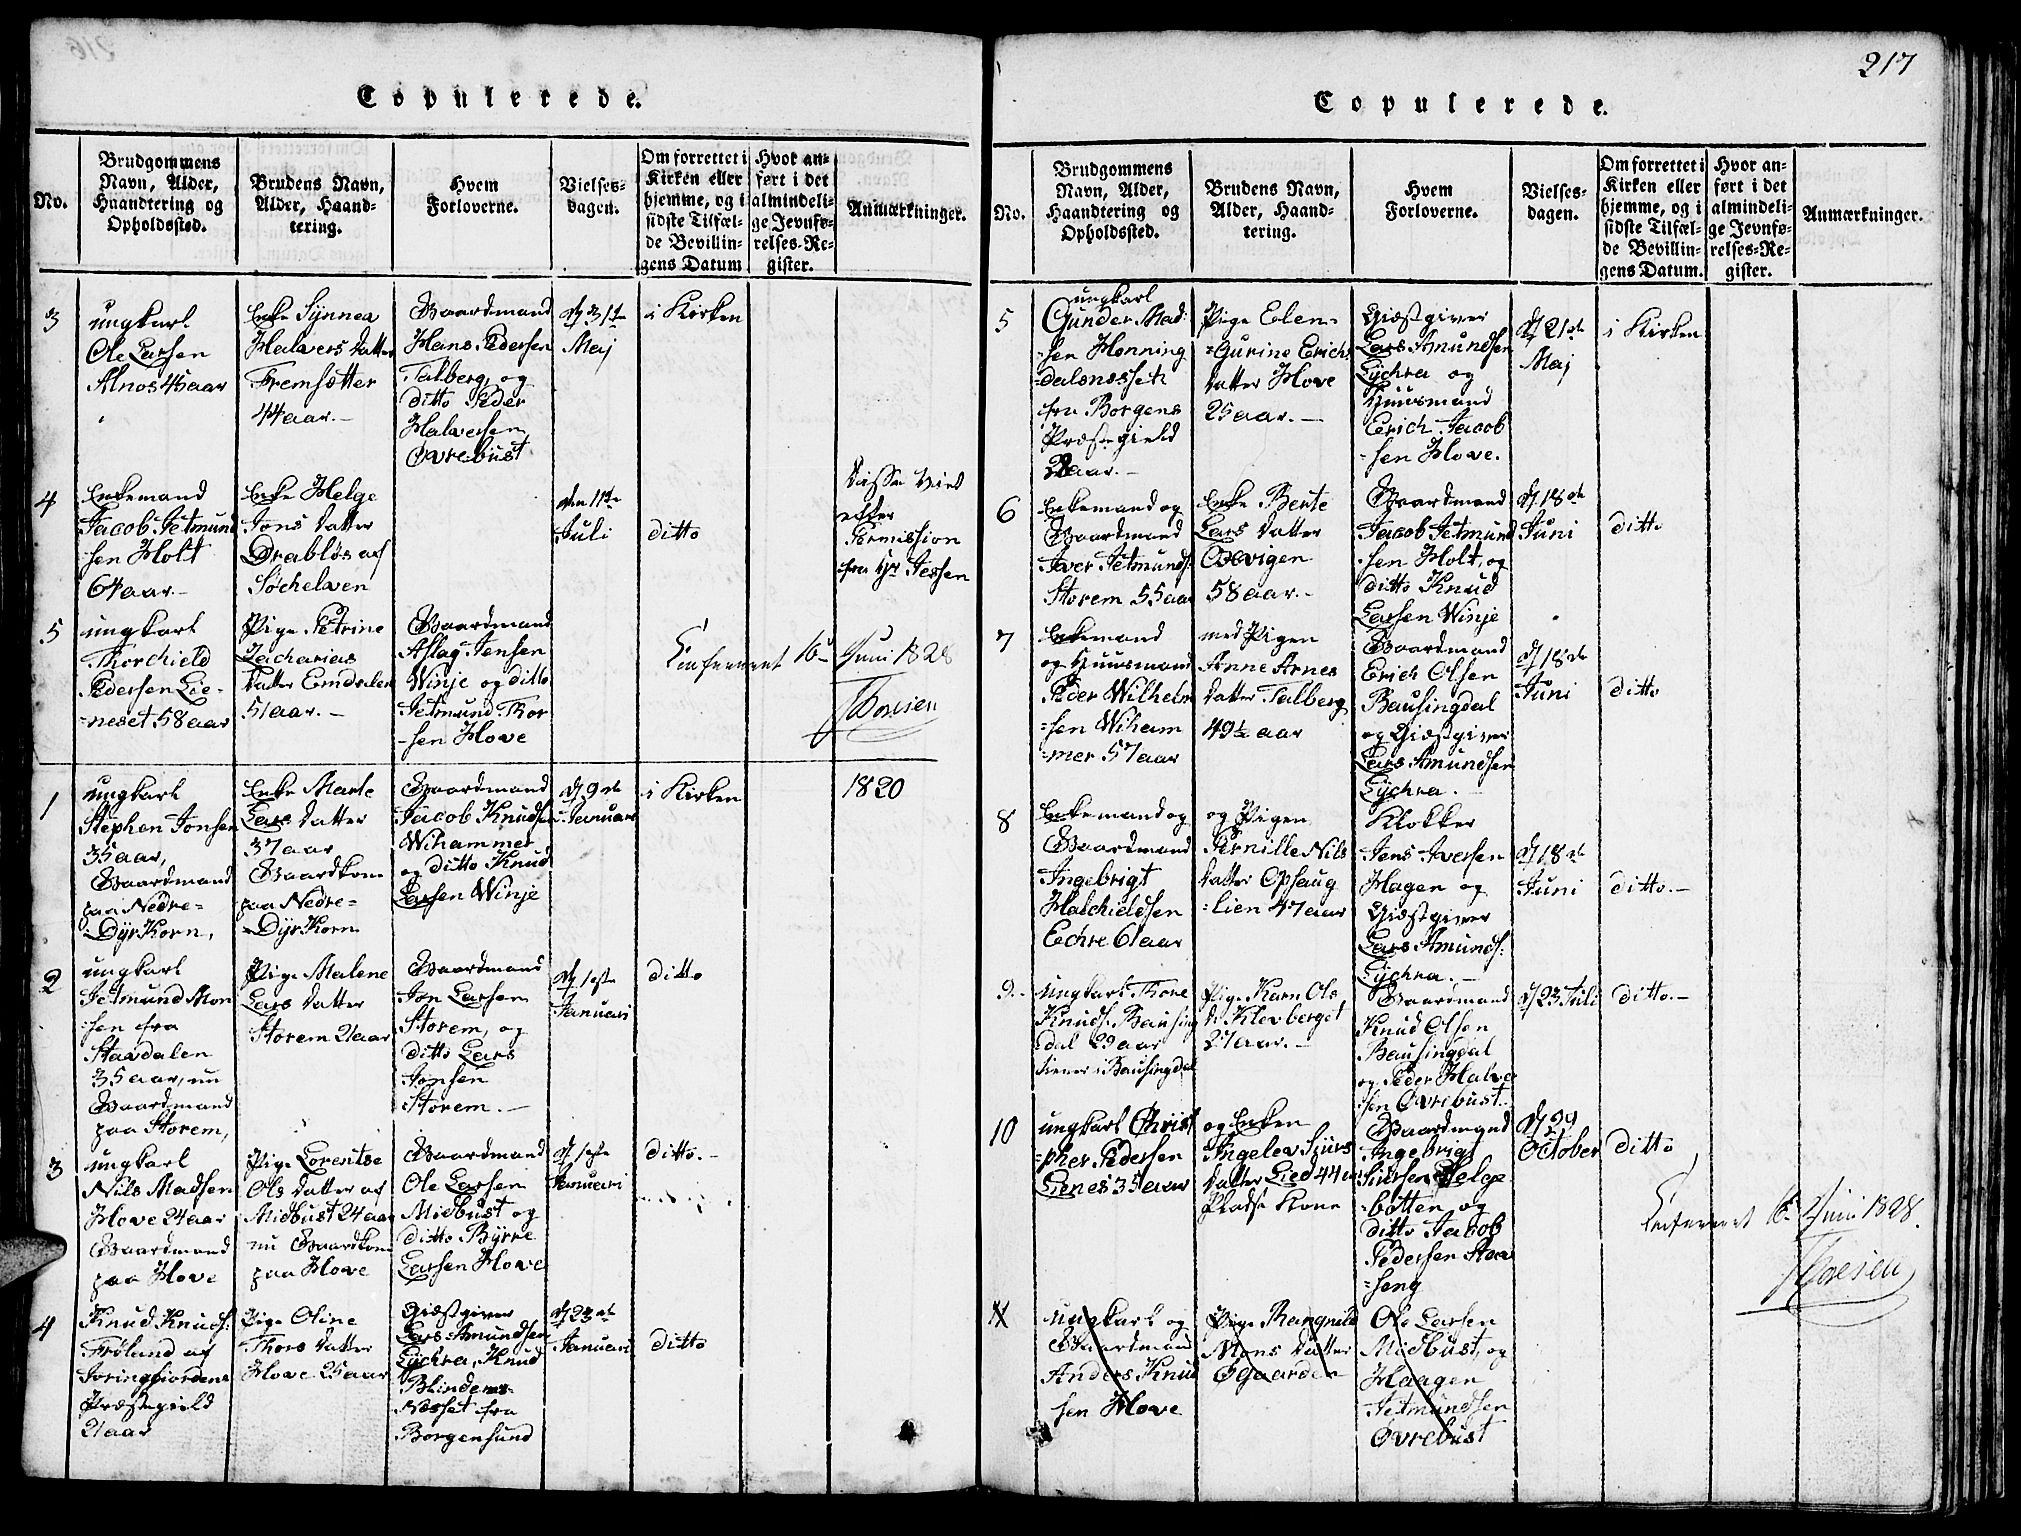 Copulerede.
No.
Brudgommens
Navn, Alder,
Haandtering og
Opholdssted.
Brudens Navn,
Alder, Haand-
tering.
Hvem
Forloverne.
Vielses-
dagen.
Om forrettet i
Kirken eller
hjemme, og i
sidste Tilfæl-
de Bevillin-
gens Datum
Hvor an-
ført i det
almindeli-
ge Jevnfø-
relses-Re-
gister.
Anmærkninger.
3
ungkarl
Ole Larsen
Alnos 45 aar
Enke Synnea
Halvers datter
Fremsætter
44 aar. -
Gaardmand
Hans Pedersen
Talberg, og
ditto Peder
Halversen
Øvrebust
d 31te
Maj
i Kirken
4
Enkemand
Jacob Jetmund
sen Holt
64 aar. -
Enke Helge
Jons datter
Drabløs af
Søchelven
den 11te
Juli
ditto
disse viet
efter
Permission
fra Hr Jessen
5
ungkarl
Thorchield
Pedersen Lie-
=neset 58 aar
Pige Petrine
Zacharias
datter Emdalen
51 aar. -
Gaardmand
Aslag Jensen
Winje og ditto
Jetmund Thor
-sen Hove
Confereret 16 Juni 1828
1820
1
ungkarl
Stephen Jonsen
35 aar,
Gaardmand
paa Nedre=
Dyrkorn,
Enke Marte
Lars datter
37 aar
Gaardkone
paa Nedre=
Dyrkorn
Gaardmand
Jacob Knudsen
Wihammer
og ditto Knud
Larsen Winje
d 9de
Januari
i Kirken
2
ungkarl
Jetmund Mon
sen fra
Stavdalen
35 aar, nu
Gaardmand
paa Storem,
Pige Malene
Lars datter
Storem 21 aar
Gaardmand
Jon Larsen
Storem, og
ditto Lars
Jonsen
Storem. -
d 1ste
Januari
ditto
3
ungkarl
Nils Madsen
Hove 24 aar
Gaardmand
paa Hove
Pige Lorentse
Ols datter af
Midbust 24 aar
nu Gaardkone
paa Hove
Gaardmand
Ole Larsen
Midbust og
ditto Byrre
Larsen Hove
d 1ste
Januari
ditto. -
4
Knud Knuds:
Frøland af
Joringfiordens
Præstegield
21 aar
Pige Oline
Thors datter
Hove 25 aar
Giæstgiver
Lars Amundsen
Lychra, Knud
Blindems-
Næsset fra
Borgensund
d 23de
Januari
ditto
217
Copulerede.
No.
Brudgommens
Navn, Alder,
Haandtering og
Opholdssted.
Brudens Navn,
Alder, Haand-
tering.
Hvem
Forloverne.
Vielses-
dagen.
Om forrettet i
Kirken eller
hjemme, og i
sidste Tilfæl-
de Bevillin-
gens Datum.
Hvor an-
ført i det
almindeli-
ge Jevnfø-
relses-Re-
gister.
Anmærkninger.
5
ungkarl
Gunder Mad-
sen Honning
=dalsnesset
fra Borgens
Præstegield
aar. -
Pige Elen-
=Gurine Erichs
datter Hove
25 aar. -
Giæstgiver
Lars Amundsen
Lychra og
Huusmand
Erich Jacob
-sen Hove.
d 21de
Maj
i Kirken
6
Enkemand og
Gaardmand
Iver Jetmunds.
Storem 55 aar
Enke Bente
Lars datter
Oxvigen
58 aar. -
Gaardmand
Jacob Jetmund
sen Holt, og
ditto Knud
Larsen Winje
d 18de
Juni
ditto
7
Enkemand
og Huusmand
Peder Wilhelm
=sen Wiham
=mer 57 aar
med Pigen
Anne Arnes
datter Talberg
49½ aar
Gaardmand
Erich Olsen
Bausingdal
og Giæstgiver
Lars Amundsen
Lychra. -
d 18de
Juni
ditto
8
Enkemand og
Gaardmand
Ingebrigt
Halchieldsen
Echre 61 aar
og Pigen
Pernille Nils
datter Opsaug
=lien 47 aar
Klokker
Jens Iversen
Hagen og
Giæstgiver
Lars Amunds:
Lychra. -
d 18de
Juni
ditto. -
9. -
ungkarl Thore
Knuds. Bausing
dal 29 aar
tiener i Bausingdal
Pige Karn Ols
d. Klevberget
27 aar. -
Gaardmand
Knud Olsen
Bausingdal
og Peder Halve
sen Øvrebust.
d 23 Juli
ditto. -
10
ungkarl Christ
=pher Pedersen
Lienes 35 aar
og Enken
Ingelev Sjurs
datter Lied 44 aar
Pladse Kone
Gaardmand
Ingebrigt
Sivertsen Helge
=botten og
ditto Jacob
Pedersen Stav
=seng
d 29
October
ditto
Confereret 16 Juni 1828.
ungkarl og
Gaardmand
Anders Knud
sen Hove
Pige Rangnild
Mons datter
Øgaarden
Ole Larsen
Midbust, og
Haagen
Jetmundsen
Øvrebust